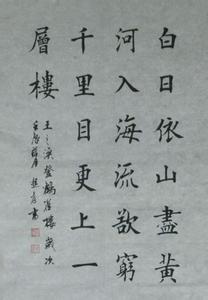 白日依山盡黃
河入海流欲窮
千里目更上一
層樓
王之渙登鸛雀樓歲次